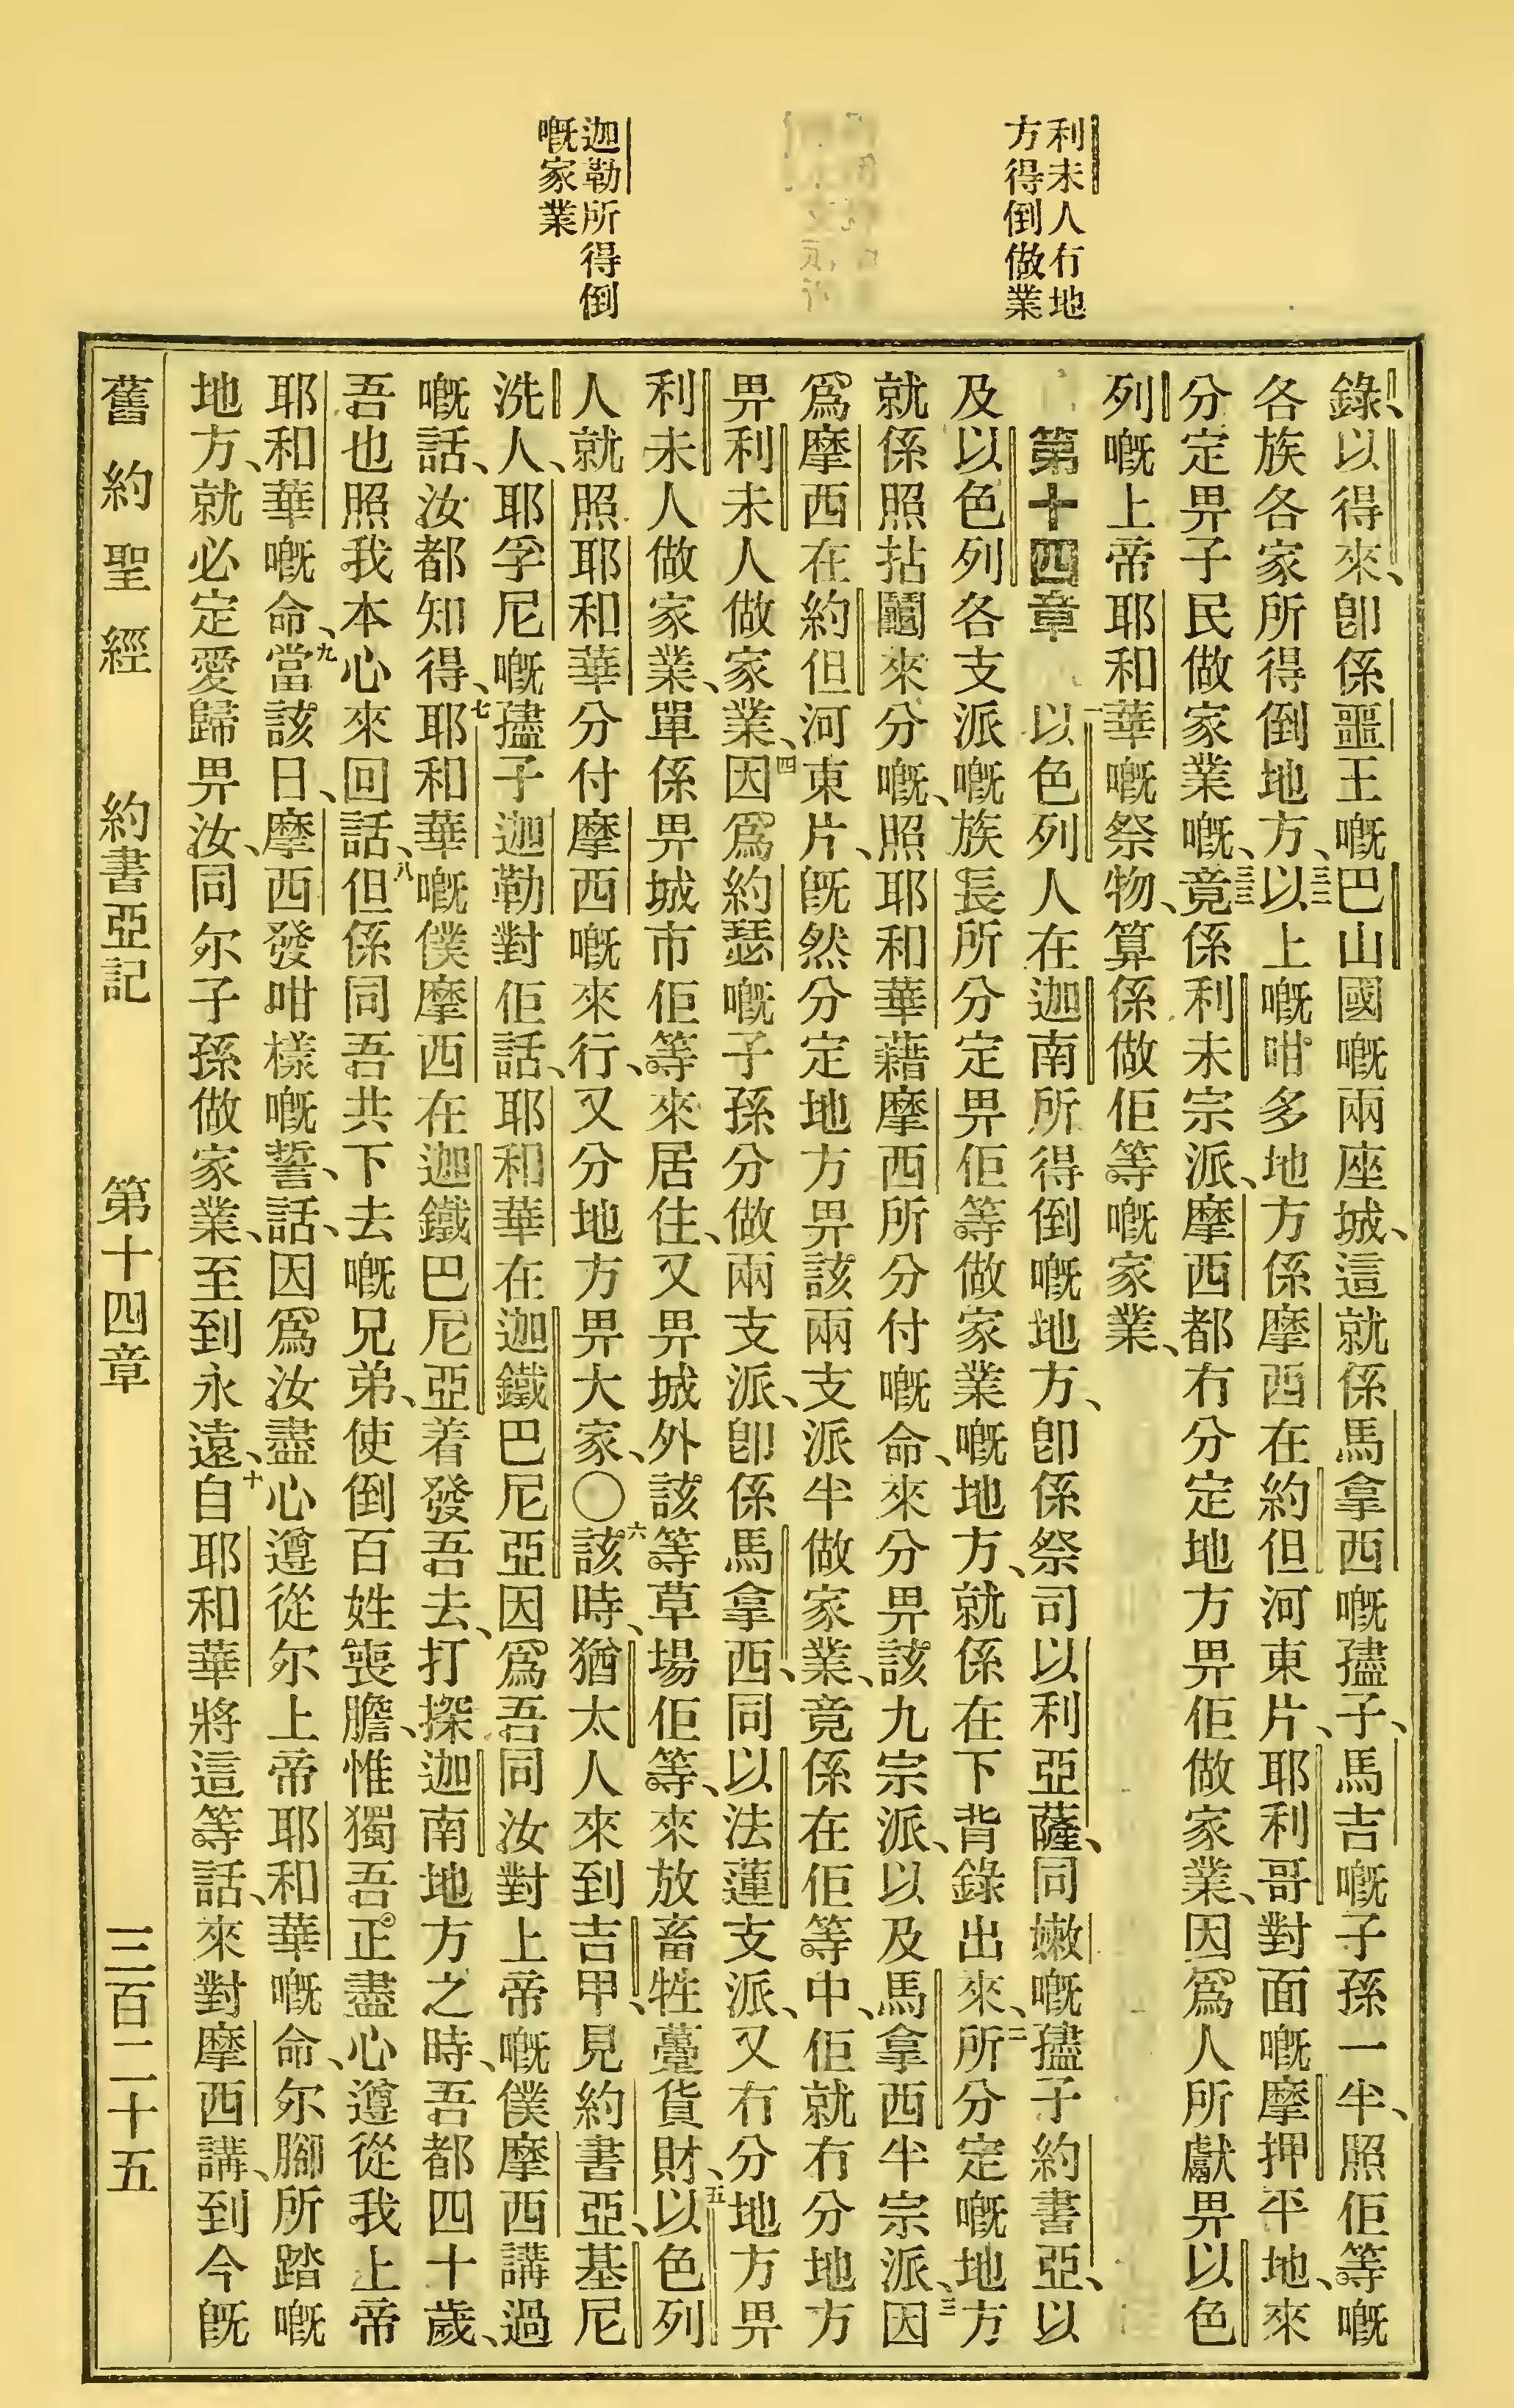 利未人冇地
方得倒做業
迦勒所得倒
嘅家業
錄、以得來、卽係噩王嘅巴山國嘅兩座城、這就係馬拿西嘅孻子、馬吉嘅子孫一半、照佢等嘅
各族各家所得倒地方、三二以上嘅咁多地方係摩西在約但河東片、耶利哥對面嘅摩押平地、來
分定畀子民做家業嘅、三三竟係利未宗派、摩西都冇分定地方畀佢做家業、因爲人所獻畀以色
列嘅上帝耶和華嘅祭物、算係做佢等嘅家業、
第十四章 一以色列人在迦南所得倒嘅地方、卽係祭司以利亞薩、同嫩嘅孻子約書亞、以
及以色列各支派嘅族長所分定畀佢等做家業嘅地方、就係在下背錄出來、二所分定嘅地方
就係照拈鬮來分嘅、照耶和華藉摩西所分付嘅命、來分畀該九宗派、以及馬拿西半宗派、三因
爲摩西在約但河東片、旣然分定地方畀該兩支派半做家業、竟係在佢等中、佢就冇分地方
畀利未人做家業、四因爲約瑟嘅子孫分做兩支派、卽係馬拿西、同以法蓮支派、又冇分地方畀
利未人做家業、單係畀城市佢等來居住、又畀城外該等草場佢等、來放畜牲蠆貨財、五以色列
人就照耶和華分付摩西嘅來行、又分地方畀大家、〇六該時、猶太人來到吉甲、見約書亞、基尼
洗人、耶孚尼嘅孻子迦勒對佢話、耶和華在迦鐵巴尼亞因爲吾同汝對上帝嘅僕摩西講過
嘅話、汝都知得、七耶和華嘅僕摩西在迦鐵巴尼亞着發吾去、打探迦南地方之時、吾都四十歲、
吾也照我本心來回話、八但係同吾共下去嘅兄弟、使倒百姓喪膽、惟獨吾正盡心遵從我上帝
耶和華嘅命、九當該日、摩西發咁樣嘅誓、話、因爲汝盡心遵從尔上帝耶和華嘅命、尔腳所踏嘅
地方、就必定愛歸畀汝、同尔子孫做家業、至到永遠、十自耶和華將這等話、來對摩西講、到今旣
舊約聖經 約書亞記 第十四章 三百二十五